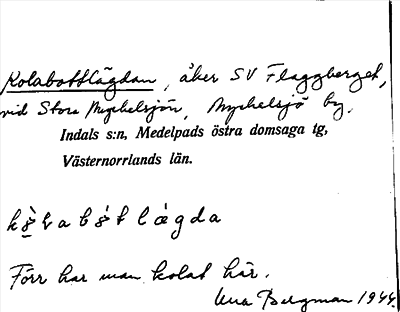 Kolabottlägdan, åker SV Flaggberget,
vid Stora Myckelsjön, Myckelsjö by.
Indals s:n, Medelpads östra domsaga tg,
Västernorrlands län.
Förr har man kolat här.
Bergman 1944.